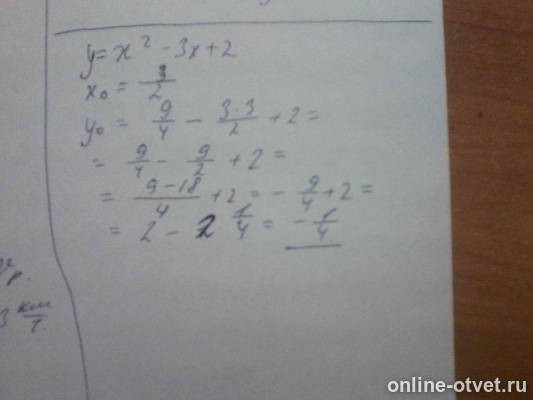 y = x² - 3x + 2
x₀ = 3/2
y₀ = 9/4 - 3·3/2 + 2 =
= 9/4 - 9/2 + 2 =
= 9-18/4 + 2 = - 9/4 + 2 =
= 2 - 2 1/4 = - 1/4
3 км/
online-otvet.ru